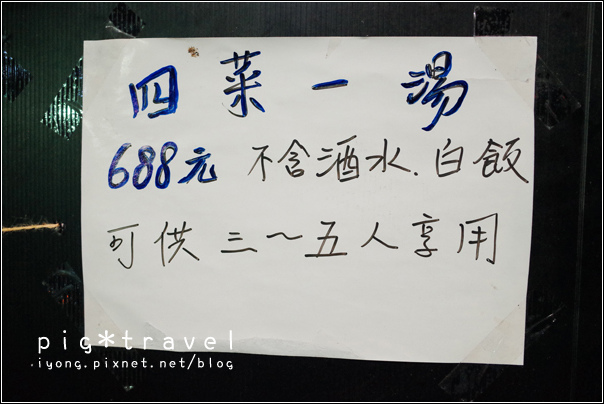 四菜一湯
688元 不含酒水.白飯
可供三～五人享用
pig*travel
.iyong.pixnet.net/blog